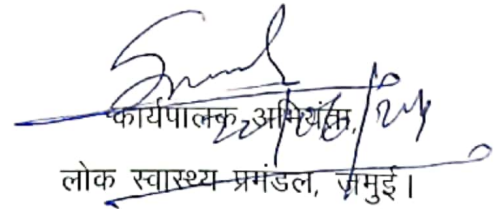 कार्यपालक अभियंता,
लोक स्वास्थ्य प्रमंडल, जमुई।